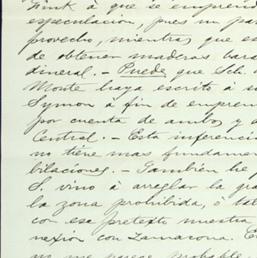 Fink á que se emprend
especulacion, pues un par
provecho, mientras que es
de obtener maderas bara
dineral. — Puede que Sch. 
Monte haya escrito á su
Symon á fin de empren
por cuenta de ambos y e
Central. — Esta inferenci
no tiene mas fundamen
bilaciones. — Tambien he p
S. vino á arreglar la gra
la zona prohibida, ó tal
con ese pretexto nuestra
nexion con Zamacona. E
no me parece probable.